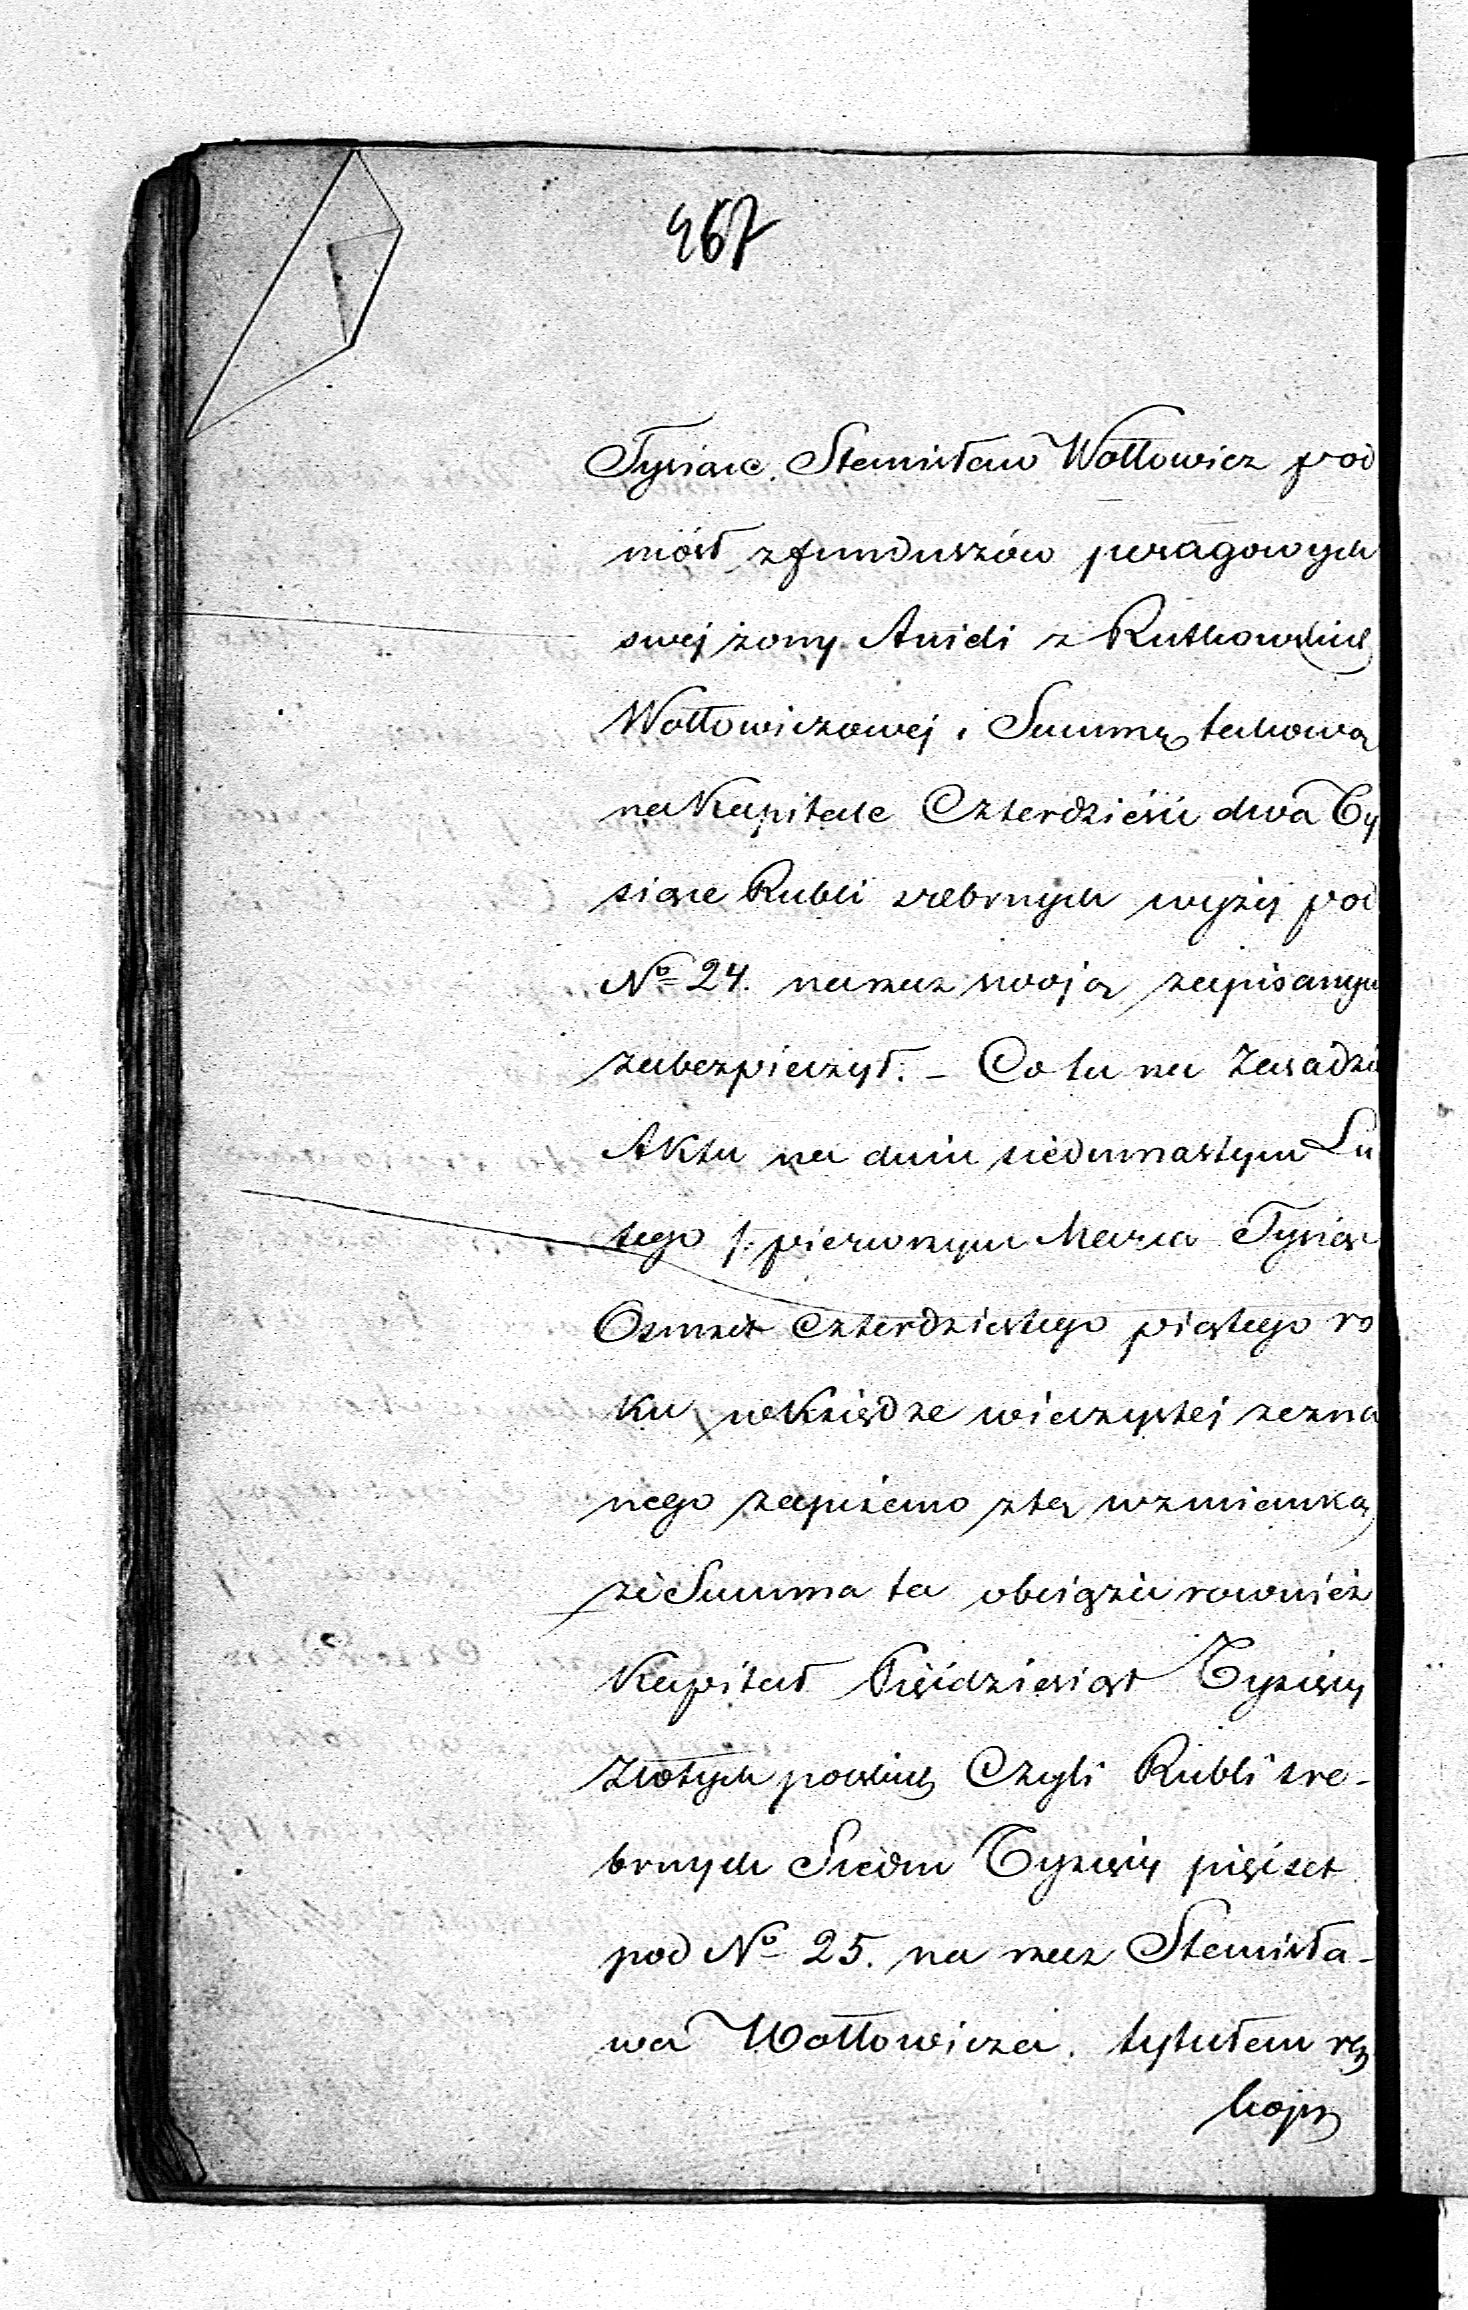 467
Tysiąc. Stanisław Wołłowicz pod
niósł z funduszów posagowych
swej żony Anieli z Rutkowskich
Wołłowiczowej i Summę takową
na Kapitale Czterdzieści dwa Ty
siące Rubli srebrnych wyżej pod
No 24. na rzecz swoją zapisanym
zabezpieczył. – Co tu na zasadzie
Aktu na dniu siedmnastym Lu
tego /: pierwszym Marca Tysiąc
Ośmset Czterdziestego piątego ro
ku w Księdze wieczystej zezna
nego zapisano z tą wzmianką
że Summa ta obciąża rownież
Kapitał Pięćdziesiąt Tysięcy
złotych polskich Czyli Rubli sre-
brnych Siedm Tysięcy pięćset
pod No 25. na rzecz Stanisła-
wa Wołłowicza. tytułem rę
kojm